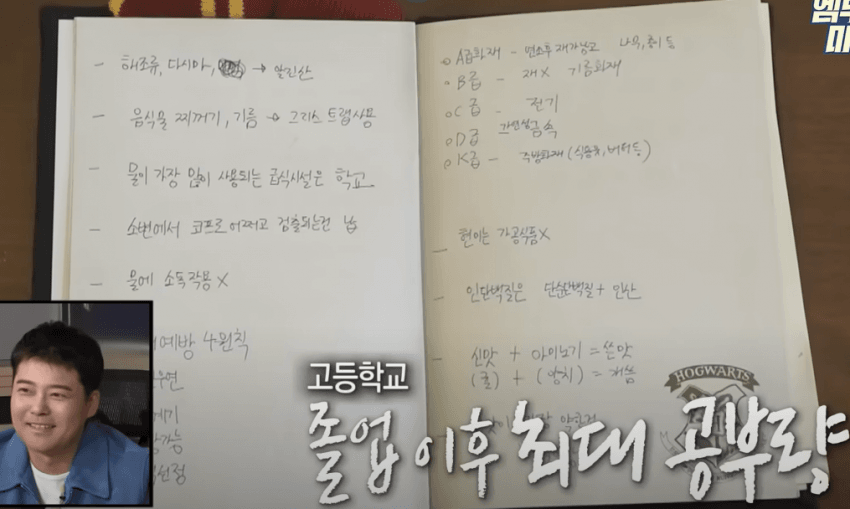 - 해조류, 다시마, → 알긴산
- 음식물 찌꺼기, 기름 → 그리스 트랩 사용
- 물이 가장 많이 사용되는 급식시설은 학교
- 소변에서 코프로 어쩌고 검출되는건 납
- 물에 소독작용 X
예방 4원칙
우연
계기
가능
선정
A급화재 - 연소후 재가남고 나무, 종이 등
B급 - 재X 기름화재
C급 - 전기
D급 금속
K급 - 주방화재 (식용유, 버터등)
- 현미는 가공식품X
- 인단백질은 단순단백질 + 인산
- 신맛 + 아미노기 = 쓴맛
(귤) + (양치) = 개씀
HOGWARTS
고등학교
졸업 이후 최대 공부량